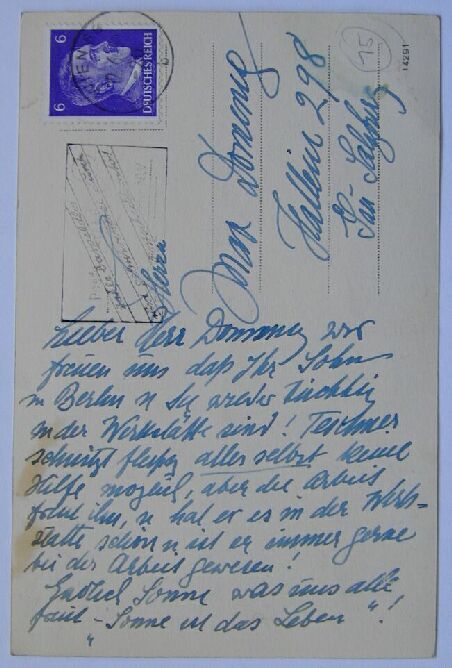 6
6
DEUTSCHES REICH
15
14291
Herrn
Max Domenig
Hallein 298
Gau Salzburg
Lieber Herr Domenig wir
freuen uns daß Ihr Sohn
in Berlin u Sie wieder tüchtig
in der Werkstätte sind! Teschner
schnitzt fleißig alles selbst keine
Hilfe möglich, aber die Arbeit
freut ihn, u hat er es in der Werk-
stätte schön u ist er immer gerne
bei der Arbeit gewesen!
Endlich Sonne was uns alle
freut - „Sonne ist das Leben"!